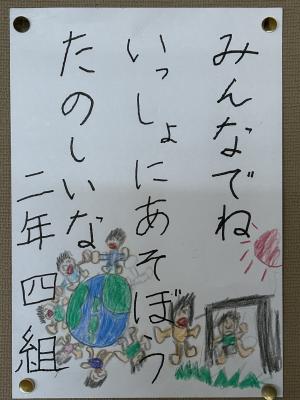 みんなでね
いっしょにあそぼう
たのしいな
二年四組